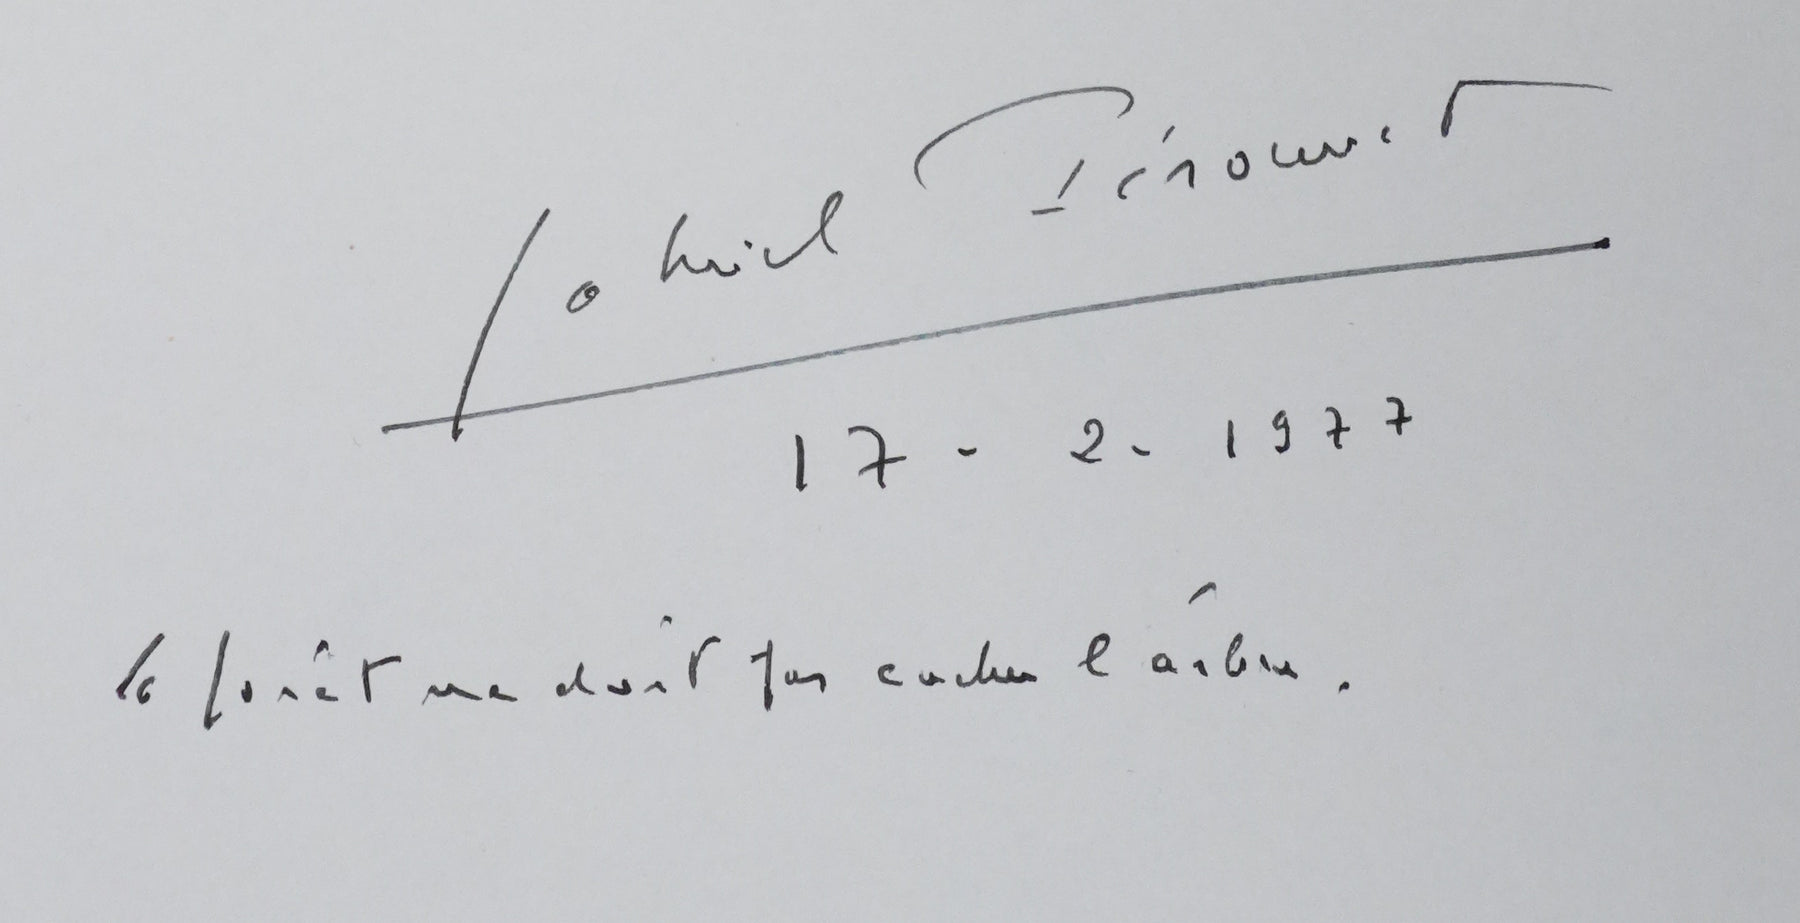 Gabriel Pérouse
17 - 2 - 1977
la forêt ne doit pas cacher l'arbre.